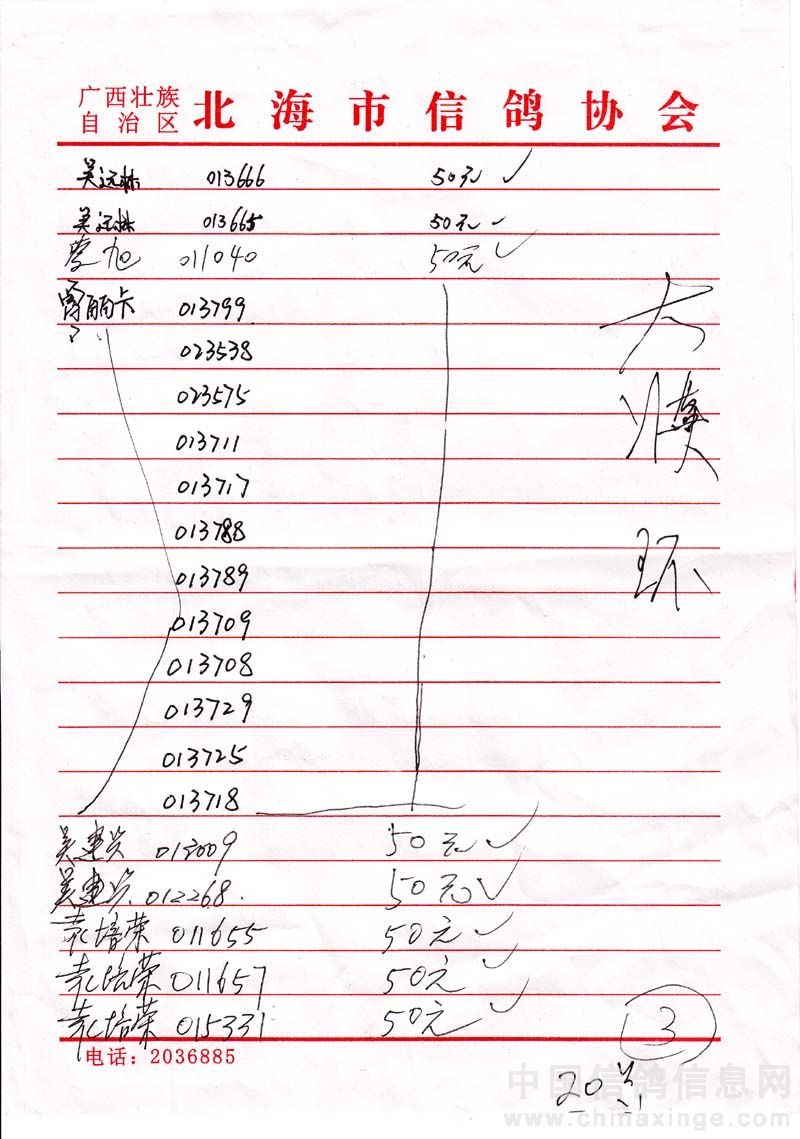 广西壮族
自治区
北海市信鸽协会
吴远林 013666 50元 ✓
吴远林 013665 50元 ✓
旭 011040 50元 ✓
丽卡 013799
023538
023575
013711
013717
013788
013789
013709
013708
013729
013725
013718
吴建兴 012009 50元 ✓
吴建兴 012268. 50元 ✓
袁培荣 011655 50元 ✓
袁培荣 011657 50元 ✓
袁培荣 015331 50元 ✓
大
奖
环
电话：2036885
3
20
中国信鸽信息网
www.chinaxinge.com